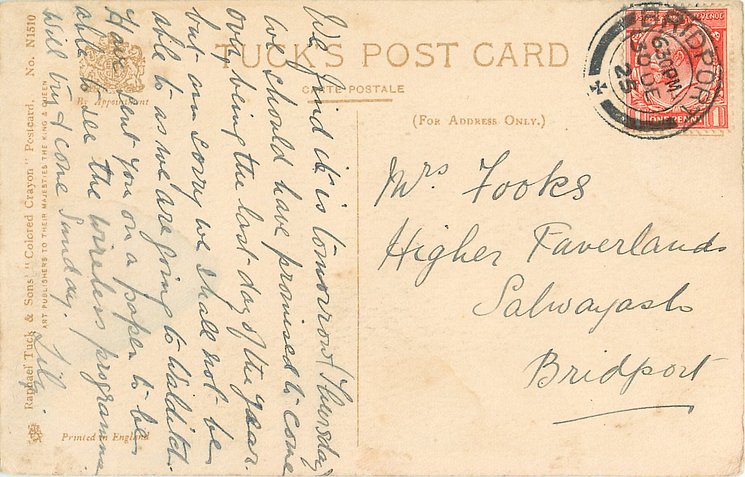 TUCK'S POST CARD
CARTE POSTALE
(FOR ADDRESS ONLY.)
By Appointment
Raphael Tuck & Sons' "Colored Crayon" Postcard, No. N1510
ART PUBLISHERS TO THEIR MAJESTIES THE KING & QUEEN.
Printed in England
We find it is tomorrow (Thursday)
we should have promised to come
over, being the last day of the year.
but am sorry we shall not be
able to as we are going to Walditch.
Have sent you on a paper to be
able to see the wireless programme
Will try & come Sunday.
BRIDPORT
6.30PM
30 DE
25
REVENUE
ONE PENNY
Mrs Fooks
Higher Faverlands
Salwayash
Bridport